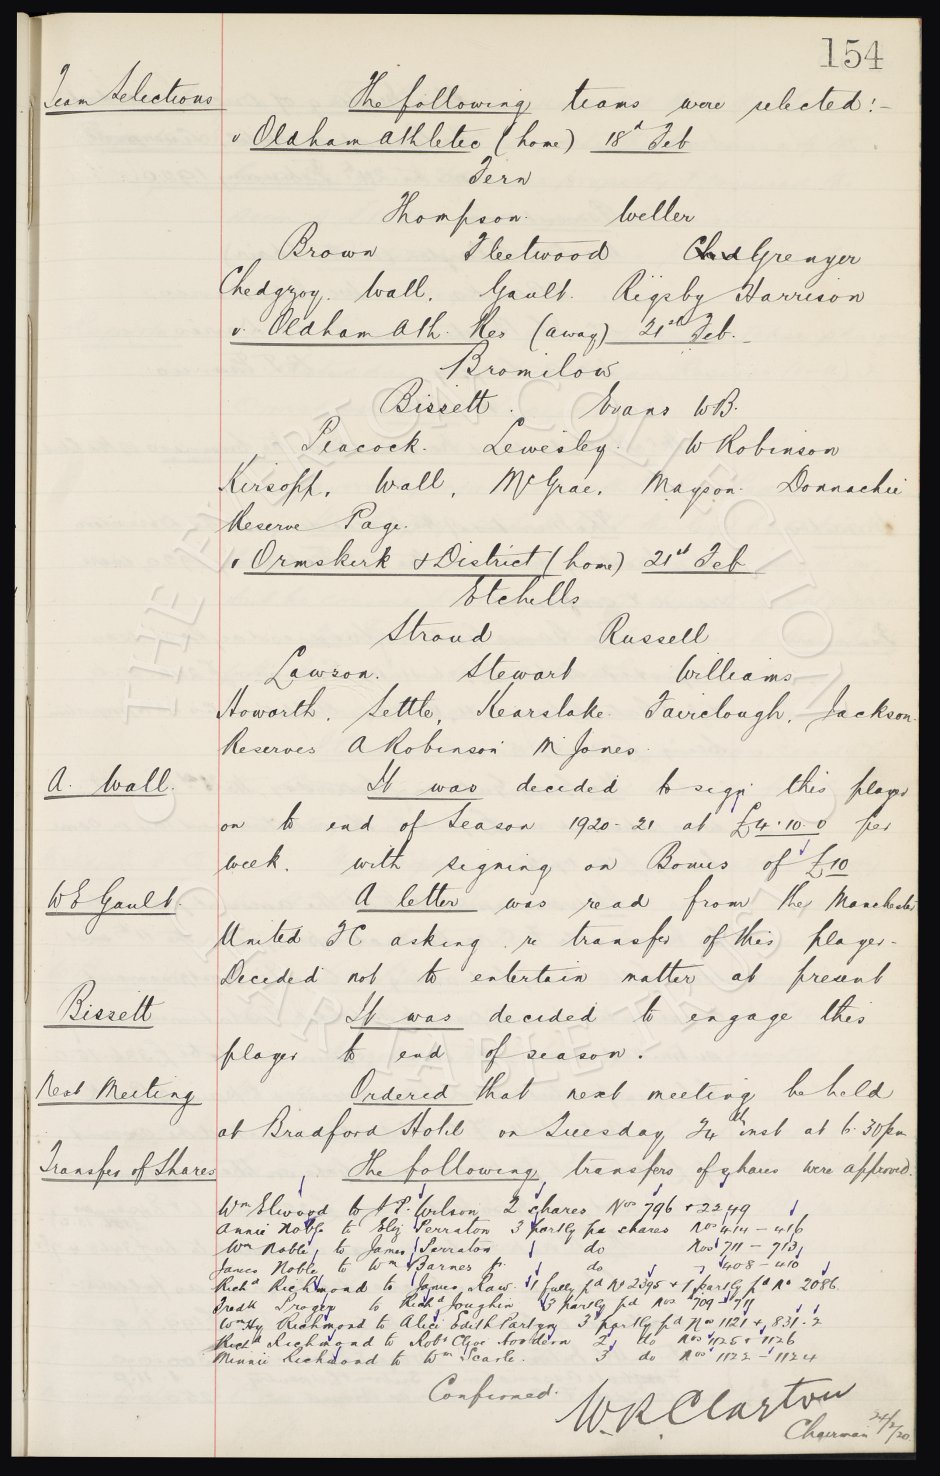 154
Team Selections The following teams were selected:-
v Oldham Athletec (home) 18th Feb
Fern
Thompson. Weller
Brown Fleetwood Grenyer
Chedgzoy. Wall. Gault. Rigsby Harrison
v. Oldham Ath. Res (away) 21st Feb.
Bromilow
Bissett. Evans WB.
Peacock. Lewesley. W Robinson
Kirsopp, Wall, McGrae. Mayson. Donnachie
Reserve Page.
v Ormskirk & District (home) 21st Feb
Etchells
Stroud Russell
Lawson. Stewart Williams
Howarth, Settle, Kearslake. Fairclough, Jackson.
Reserves A Robinson Jones.
A. Wall. It was decided to sign this player
on to end of Season 1920-21 at £4.10.0 per
week. with signing on Bonus of £10
W E Gault. A letter was read from the Manchester
United FC asking re transfer of this player-
Decided not to entertain matter at present
Bissett It was decided to engage this
player to end of season.
Next Meeting Ordered that next meeting be held
at Bradford Hotel on Tuesday 24th inst at 6.30pm
Transfer of Shares The following transfers of shares were approved.
Wm Elwood to Wilson 2 shares Nos 796 + 2249
Annie Noble to Eliz Perraton 3 partly pd shares nos 414 - 416
Wm Noble to James Perraton do Nos 711 - 713
James Noble to Wm Barnes jr. do 408 - 410
Richd Richmond to James Kaw. 1 fully pd No 2395 + 1 partly pd No 2086
Fredk to Richd Joughin 3 partly pd Nos 709 - 711
Wm Hy Richmond to Alice Edith Partgen 3 partly pd Nos 1121 + 831-2
Richd Richmond to Robt Clyde Noodern 2 do Nos 1125 + 1126
Minnie Richmond to Wm Searle. 3 do Nos 1122 - 1124
Confirmed.
W.R. Clayton
Chairman 24/2/20
THE EVERTON COLLECTION
CHARITABLE TRUST